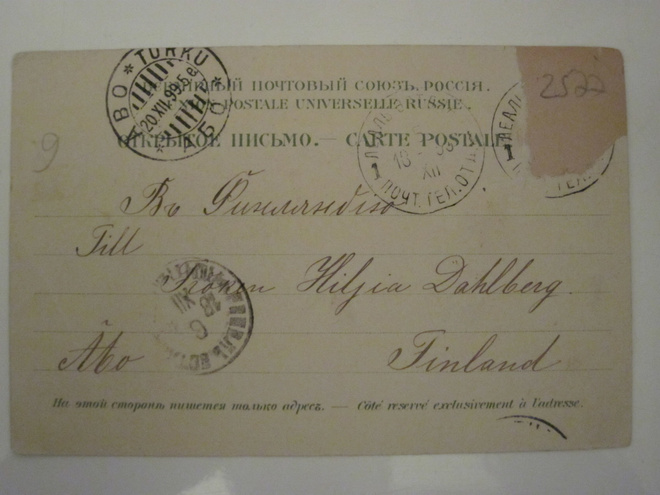 ÅBO * TURKU * АБО *
20.XII.99.5 e
ПОЧТОВЫЙ СОЮЗЪ. РОССІЯ.
POSTALE UNIVERSELLE RUSSIE.
2522
ОТКРЫТОЕ ПИСЬМО. — CARTE POSTALE
ПОЧТ. ТЕЛ. ОТ
XII
1
1
9
Въ Финляндію
Till
Fröken Hiljia Dahlberg.
18
XII
6
Åbo Finland
На этой сторонѣ пишется только адресъ. — Côté réservé exclusivement à l'adresse.